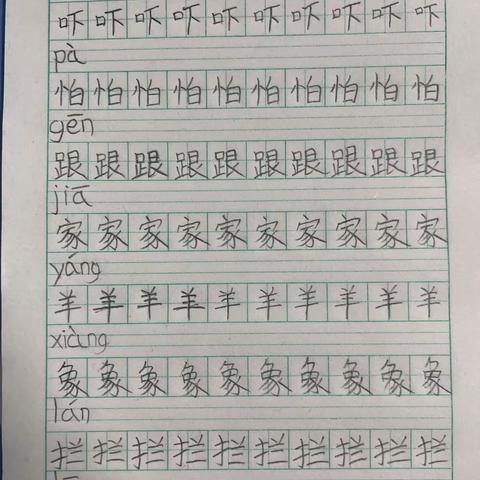 吓吓吓吓吓吓吓吓吓吓
pà
怕怕怕怕怕怕怕怕怕怕
gēn
跟跟跟跟跟跟跟跟跟跟
jiā
家家家家家家家家家家
yáng
羊羊羊羊羊羊羊羊羊羊
xiàng
象象象象象象象象象象
lán
拦拦拦拦拦拦拦拦拦拦